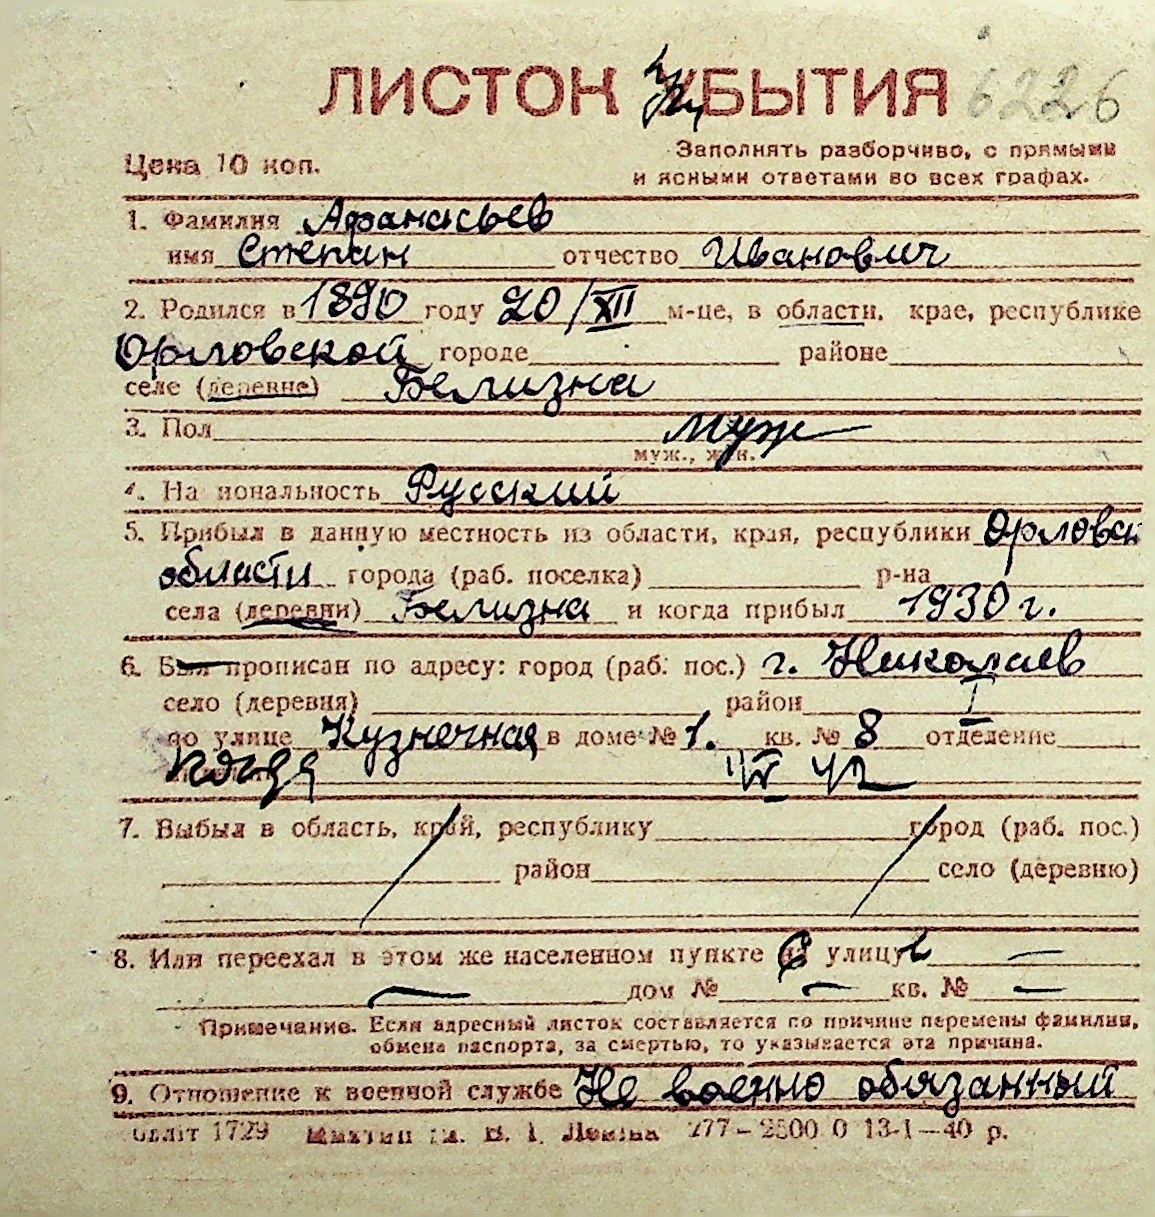 ЛИСТОК УБЫТИЯ 6226
Цена 10 коп.
Заполнять разборчиво, с прямыми
и ясными ответами во всех графах.
1. Фамилия Афанасьев
имя Степан отчество Иванович
2. Родился в 1890 году 20/XII м-це, в области, крае, республике
Орловской городе районе
селе (деревне) Белизна
3. Пол муж
муж., жен.
4. Национальность Русский
5. Прибыл в данную местность из области, края, республики Орловск
области города (раб. поселка) р-на
села (деревни) Белизна и когда прибыл 1930 г.
6. Был прописан по адресу: город (раб. пос.) г. Николаев
село (деревня) район I
по улице Кузнечная в доме № 1. кв. № 8 отделение
когда IV 42
7. Выбыл в область, край, республику город (раб. пос.)
район село (деревню)
8. Или переехал в этом же населенном пункте с улицы —
— дом № — кв. № —
Примечание. Если адресный листок составляется по причине перемены фамилии,
обмена паспорта, за смертью, то указывается эта причина.
9. Отношение к военной службе Не военно обязанный
облліт 1729 ім. В. І. Леніна 277—2500 0 13-I—40 р.